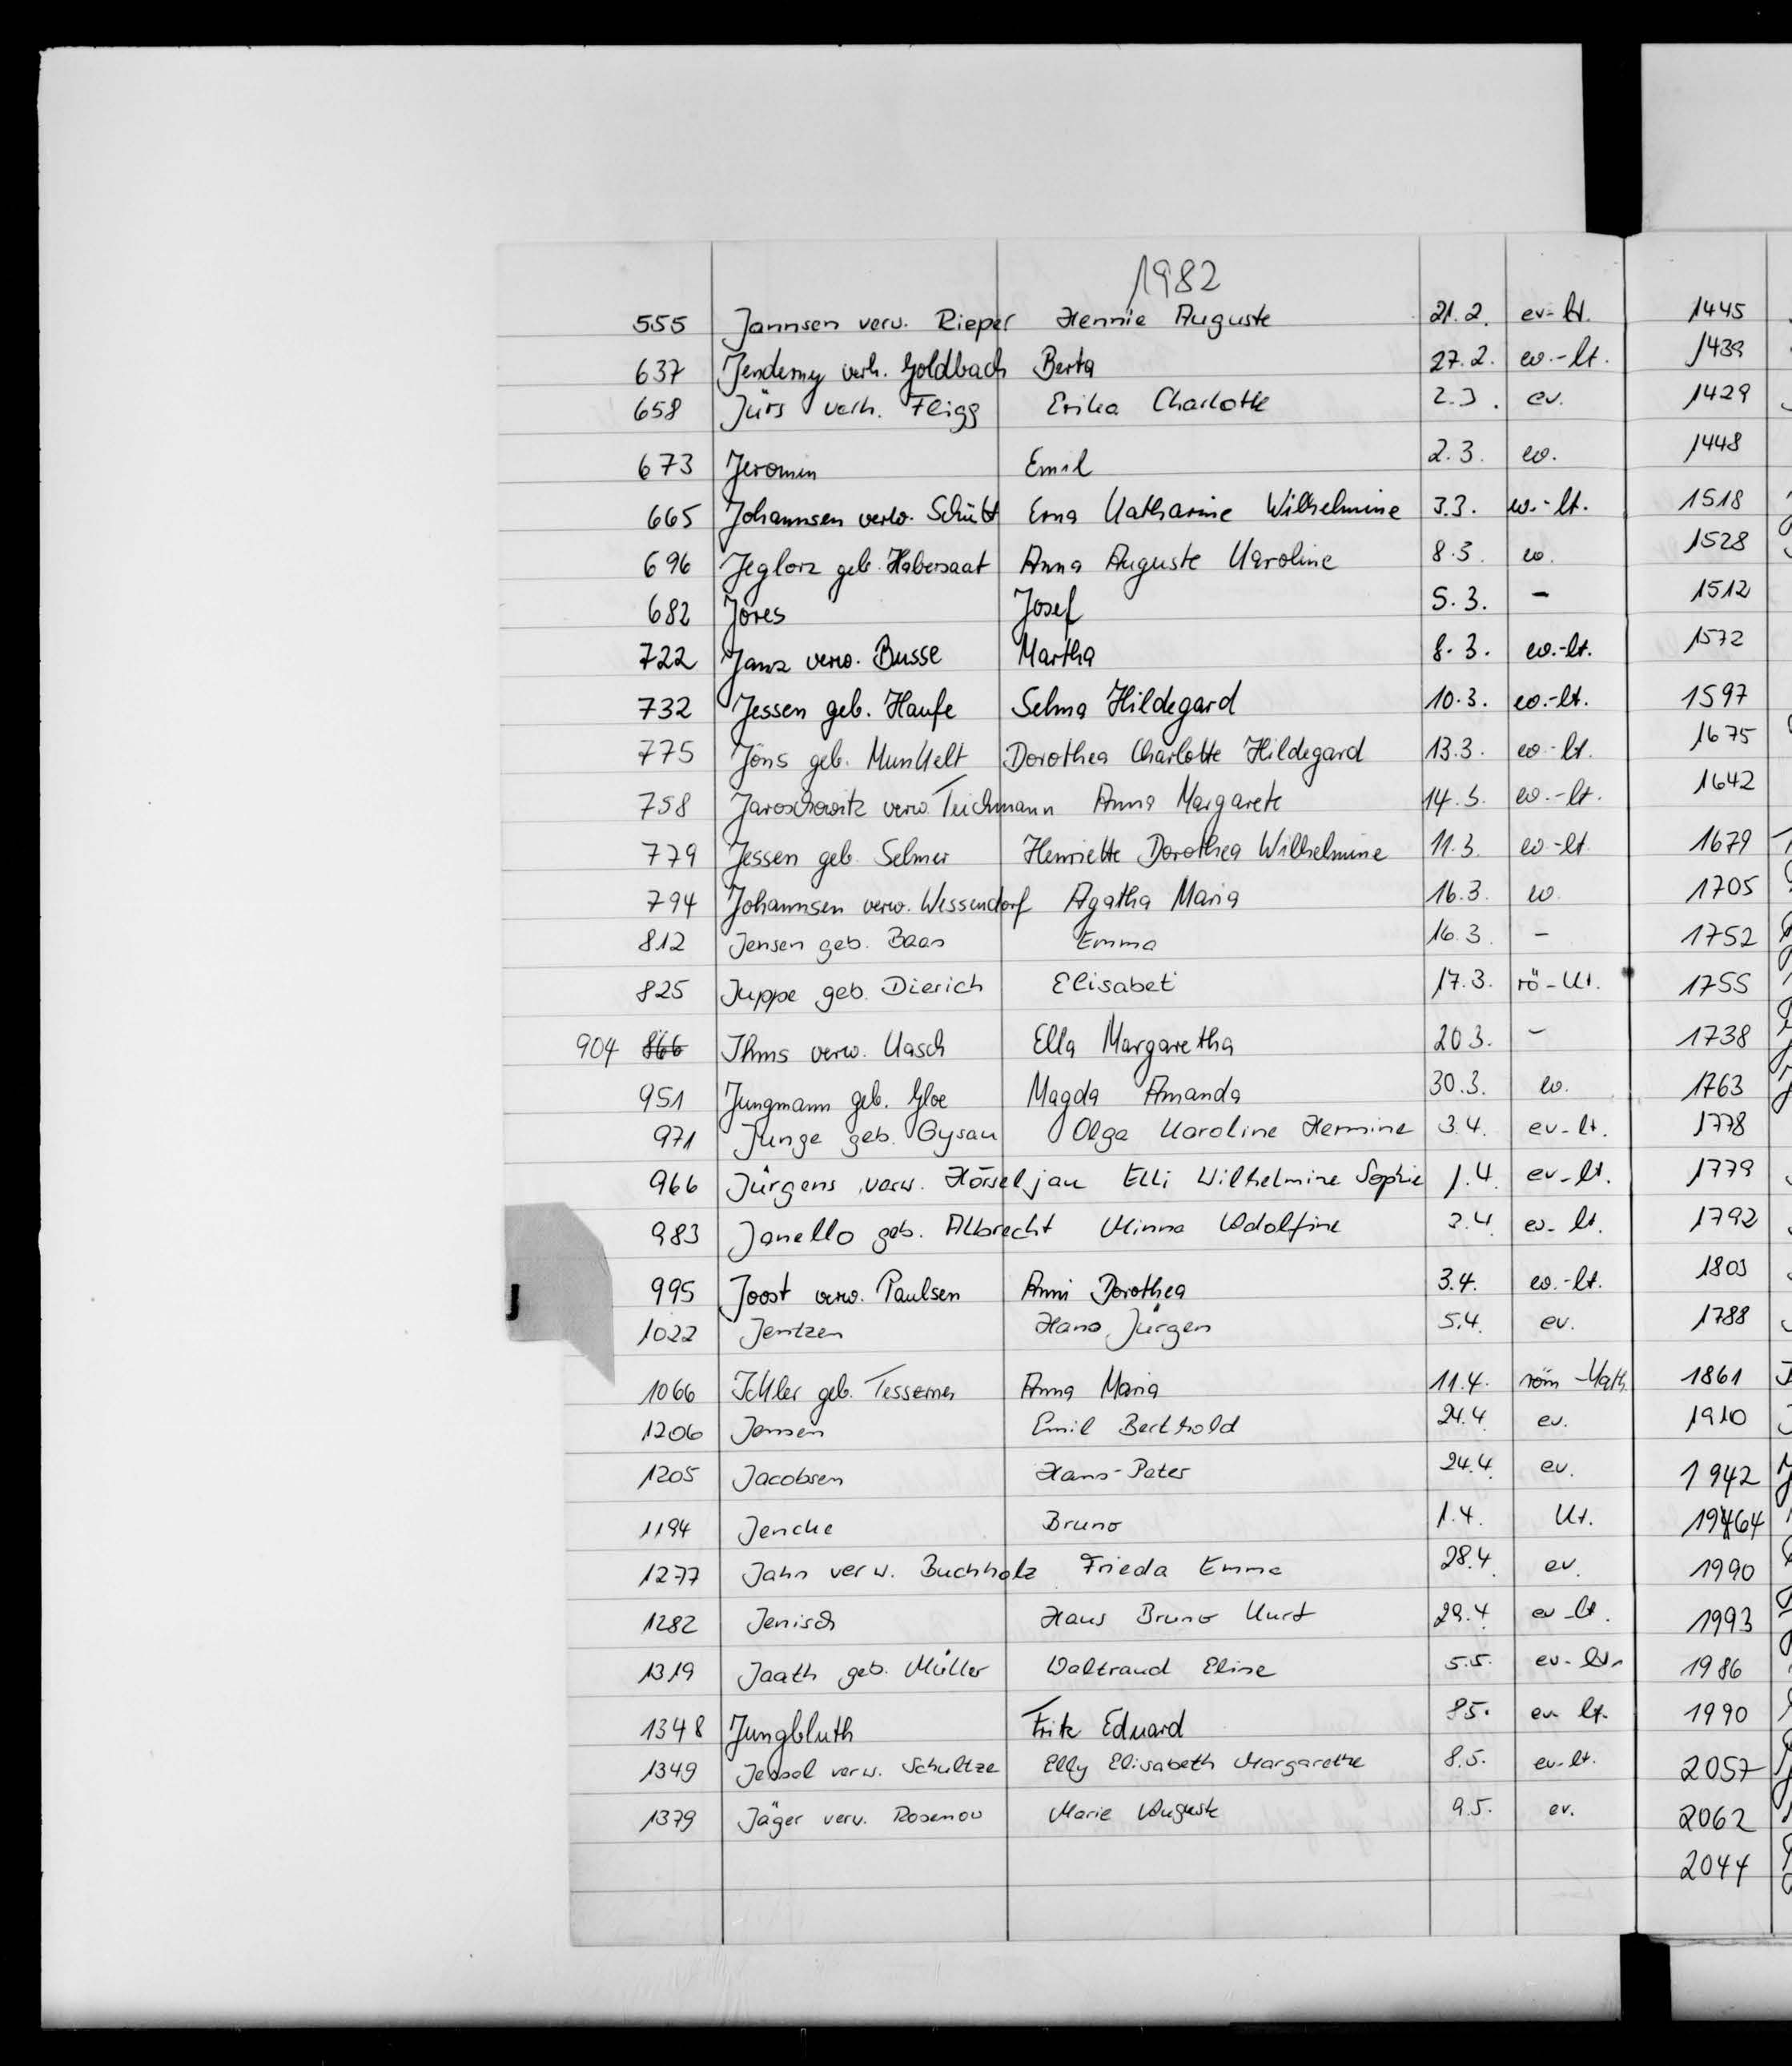 1982
555 Jannsen verw. Rieper Hennie Auguste 21.2. ev-lt.
637 Jendemy verh. Goldbach Berta 27.2. ev.-lt.
658 Jürs verh. Fligg Erika Charlotte 2.3. ev.
673 Jeromin Emil 2.3. ev.
665 Johannsen verw. Schütt Erna Katharine Wilhelmine 3.3. ev.-lt.
696 Jeglorz geb. Habersaat Anna Auguste Karoline 8.3. ev.
682 Jöres Josef 5.3. -
722 Janz verw. Busse Martha 8.3. ev.-lt.
732 Jessen geb. Haufe Selma Hildegard 10.3. ev.-lt.
775 Jöns geb. Munkelt Dorothea Charlotte Hildegard 13.3. ev-lt.
758 Jaroschowitz verw. Teichmann Anna Margarete 14.3. ev.-lt.
779 Jessen geb. Selmer Henriette Dorothea Wilhelmine 11.3. ev-lt
794 Johannsen verw. Wessendorf Agatha Maria 16.3. ev.
812 Jensen geb. Baas Emma 16.3. -
825 Juppe geb. Dierich Elisabet 17.3. rö-kt.
904 866 Ihms verw. Kasch Ella Margaretha 20 3. -
951 Jungmann geb. Gloe Magda Amanda 30.3. ev.
971 Junge geb. Gysau Olga Karoline Hermine 3.4. ev-lt.
966 Jürgens verw. Hörseljau Elli Wilhelmine Sophie 1.4. ev-lt.
983 Janello geb. Albrecht Minna Adolfine 3.4 ev-lt.
995 Joost verw. Paulsen Anni Dorothea 3.4. ev.-lt.
J
1022 Jentzen Hans Jürgen 5.4. ev.
1066 Ickler geb. Anna Maria 11.4. röm-kath
1206 Jensen Emil Berthold 24.4 ev.
1205 Jacobsen Hans-Peter 24.4. ev.
1194 Jencke Bruno 1.4. kt.
1277 Jahn verw. Buchholz Frieda Emma 28.4. ev.
1282 Jenisch Hans Bruno Kurt 29.4. ev-lt.
1319 Jaath geb. Müller Waltraud Eline 5.5. ev-lt.
1348 Jungbluth Fritz Eduard 8 5. ev lt.
1349 Jessel verw. Schultze Elly Elisabeth Margarethe 8.5. ev-lt.
1379 Jäger verw. Rosenov Marie Auguste 9.5. ev.
1445
1439
1429
1448
1518
1528
1512
1572
1597
1675
1642
1679
1705
1752
1755
1738
1763
1778
1779
1792
1803
1788
1861
1910
1942
1990
1993
1986
1990
2057
2062
2044